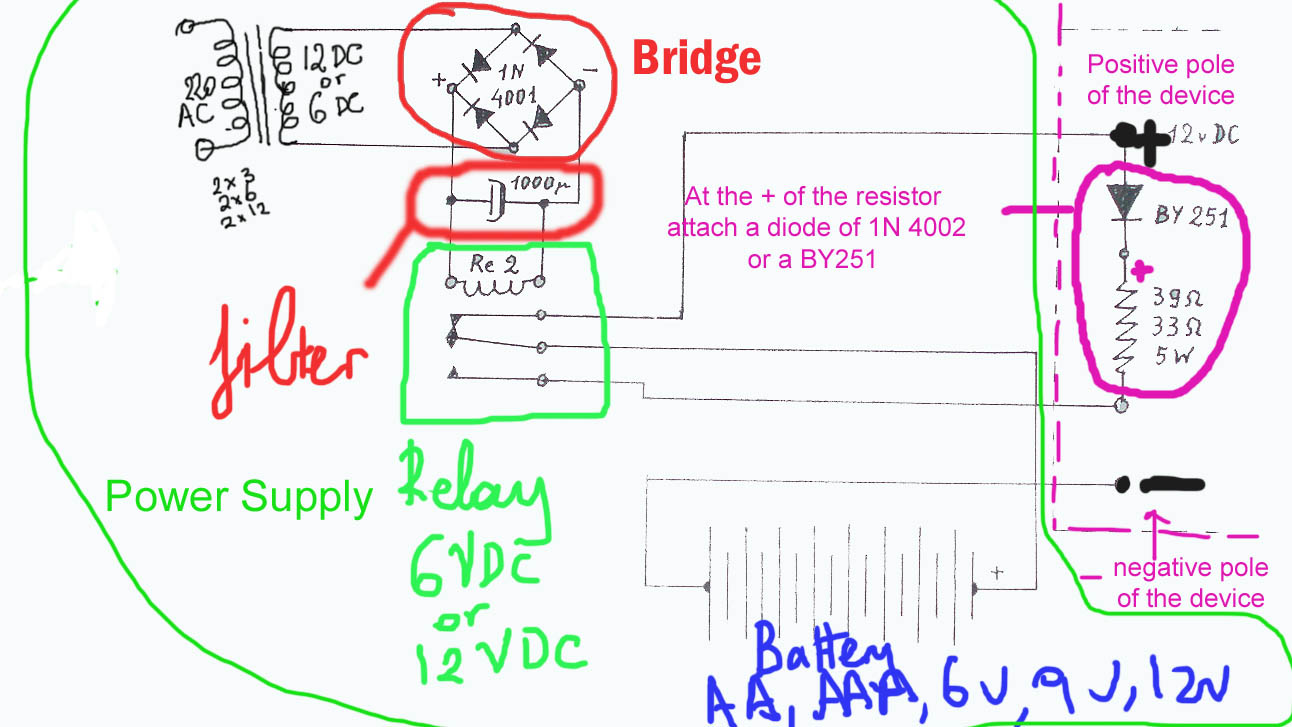 12 DC
or
6 DC
220
AC
2 x 3
2 x 6
2 x 12
+
1N
4001
-
Bridge
1000µ
filter
Re 2
Relay
6VDC
or
12VDC
Power Supply
At the + of the resistor
attach a diode of 1N 4002
or a BY251
Positive pole
of the device
+ 12v DC
BY 251
+
39Ω
33Ω
5W
negative pole
of the device
+
Battery
AA, AAA, 6V, 9V, 12V